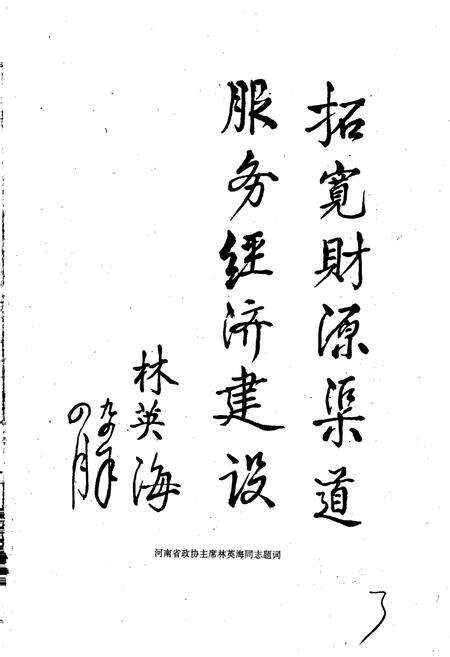 拓寬財源渠道
服务經济建设
林英海
河南省政协主席林英海同志题词